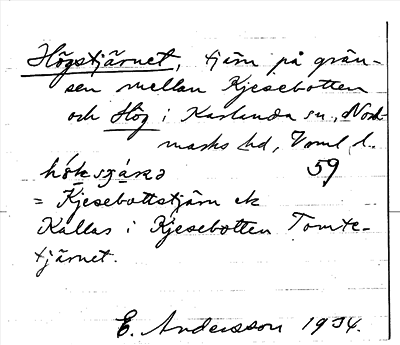 Högstjärnet, tjärn på grän-
sen mellan Kjesebotten
och Hög i Karlanda sn, Nord-
marks hd, Vrml. l.
59
= Kjesebottstjärn ek
Kallas i Kjesebotten Tomte-
tjärnet.
E. Andersson 1934.